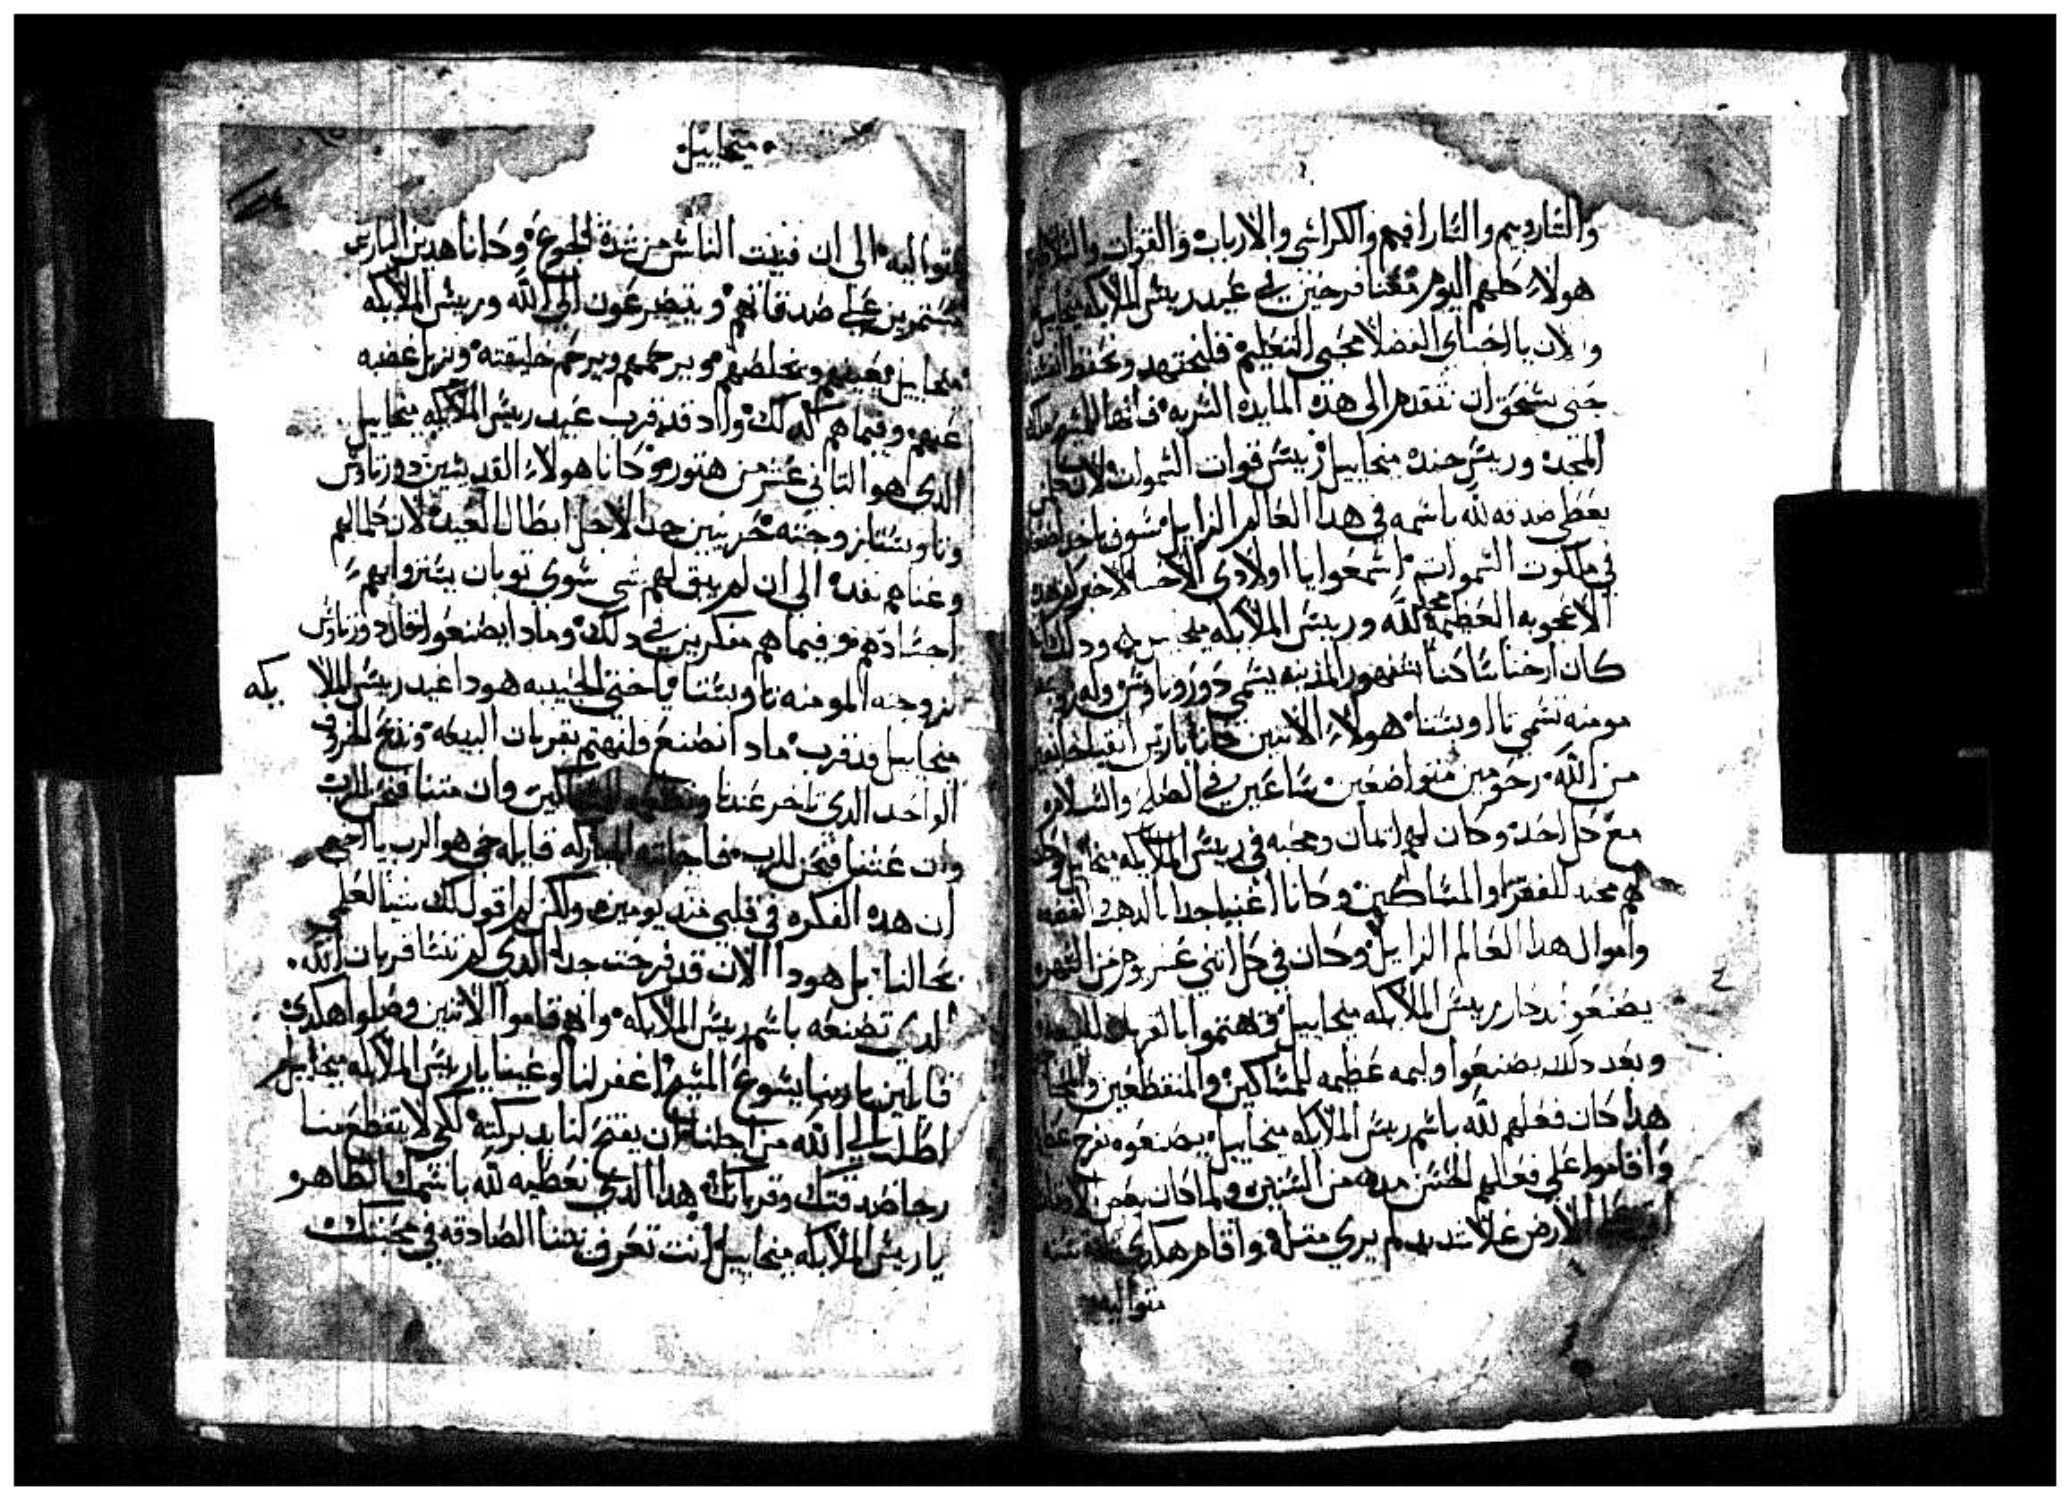 والشاروبيم والسارافيم والكراسي والارباب والقوات
هولاء كلهم اليوم معنا فرحين في عيد رييس الملايكه ميخاييل
والان يا احباي الفضلا محبي التعليم فلنجتهد ونحفظ
حتي نستحق ان نتقدم الي هذه المايده السريه
الممجده ورييس جنده ميخاييل رييس قوات السموات لان كلمن
يعطي صدقه لله باسمه في هدا العالم الزايل سوف ياخد
في ملكوت السموات اسمعوا يا اولادي الاحبا لاخبركم بهده
الاعجوبه العظيمه لله ورييس الملايكه ميخاييل ودلك
كان ارخنا ساكنا المدينه يسمي دوروتاوس وله زوجه
مومنه تسمي تاوبستا هولاء الاتنين كانا بارين اتقيا خايفين
من الله رحومين متواضعين ساعين في الصلح والسلامه
مع كل احد وكان لهم ايمان ومحبه في رييس الملايكه ميخاييل
لهم محبه للفقرا والمساكين وكانا اغنيا جدا بالدهب والفضه
واموال هدا العالم الزايل وكان في كل اتني عشر يوم من الشهر
يصنعون تدكار رييس الملايكه ميخاييل
وبعد دلك يصنعوا وليمه عظيمه للمساكين والمنقطعين
هدا كان فعلهم لله باسم رييس الملايكه ميخاييل يصنعوه بفرح
واقاموا علي فعلهم الحسن مده من السنين ولما كان
الارض غلا شديد لم يري متله واقام هكدي
متواليه
ميخاييل
متواليه الي ان فنيت الناس من شدة الجوع وكانا هدين البارين
مستمرين علي صدقاتهم ويتضرعون الي الله ورييس الملايكه
ميخاييل يعينهم ويخلصهم ويرحمهم ويرحم خليقته ويزيل غضبه
عنهم وفيما هم كدلك وادا قد قرب عيد رييس الملايكه ميخاييل
الدي هو التاني عشر من هتور وكانا هولاء القديسين دوروتاوس
وتاوبستا زوجته حزينين جدا لاجل ابطال العيد لان كلمالهم
وغناهم نفد الي ان لم يبق لهم شي سوي توبان يستروا بهم
اجسادهم وفيما هم مفكرين في دلك ومادا يصنعوا قال دوروتاوس
لزوجته المومنه تاوبستا يا اختي الحبيبه هودا عيد رييس الملا يكه
ميخاييل قد قرب مادا نصنع ولنهتم بقربان البيعه وندبح الخروف
الواحد الدي تاخر عندنا ونطعمه للمساكين وان متنا فنحن للرب
وان عشنا فنحن للرب فاجابته المباركه قايله حي هو الرب يا اخي
ان هده الفكره في قلبي مند يومين ولكن لم اقول لك شيا لعلمي
بحالنا بل هودا الان قد فرحت جدا الدي لم تنسا قربان الله
الدي تصنعه باسم رييس الملايكه وانهم قاموا الاتنين وصلوا هكدي
قايلين يا ربنا يسوع المسيح اغفر لنا واعيننا يا رييس الملايكه ميخاييل
اطلب الي الله من اجلنا ان يفتح لنا يد بركته لكي لا ينقطع منا
رجا صدقتك وقربانك هدا الدي نعطيه لله باسمك الطاهر
يا رييس الملايكه ميخاييل انت تعرف نيتنا الصادقه في محبتك